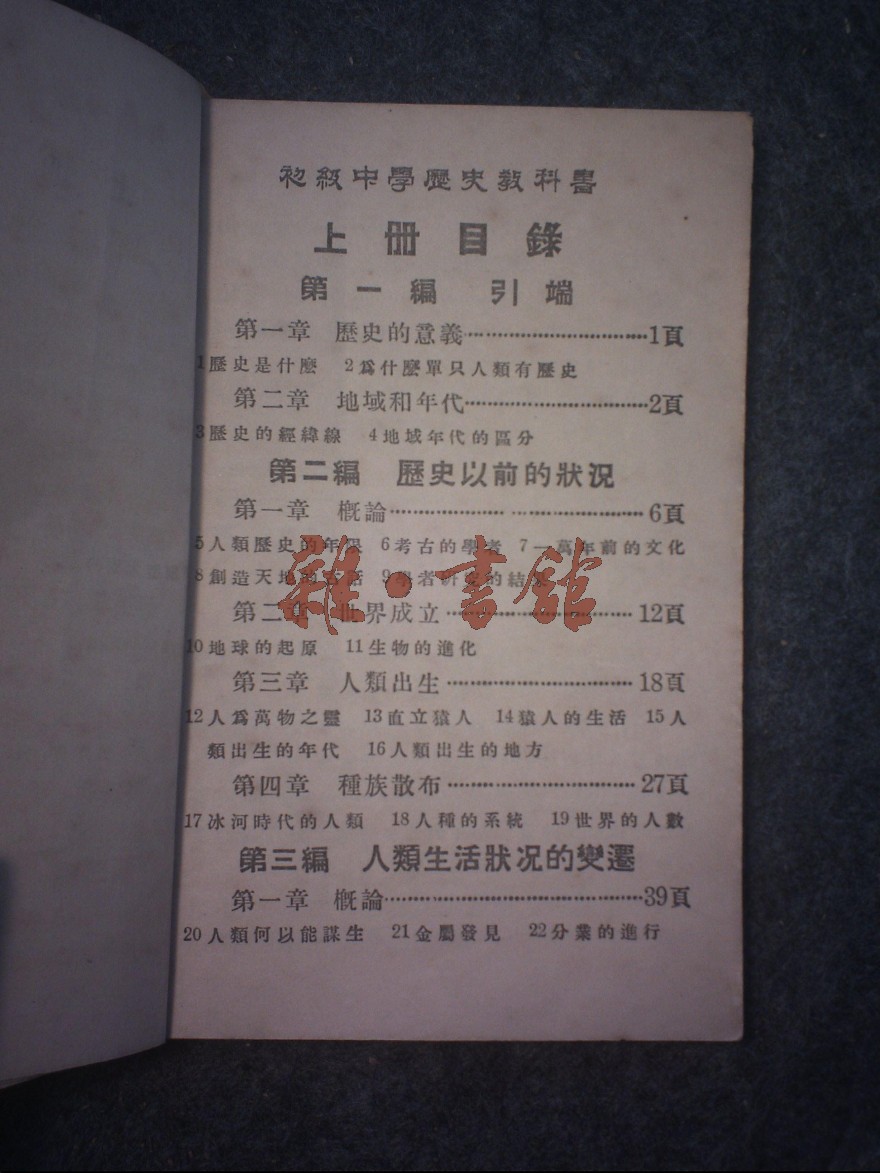 初級中學歷史教科書
上冊目錄
第一編 引端
第一章 歷史的意義……………………1頁
1歷史是什麼 2爲什麼單只人類有歷史
第二章 地域和年代……………………2頁
3歷史的經緯線 4地域年代的區分
第二編 歷史以前的狀況
第一章 概論……………………6頁
5人類歷史的年限 6考古的學者 7一萬年前的文化
8創造天地的古話 9學者研究的結果
第二章 世界成立……………………12頁
10地球的起原 11生物的進化
第三章 人類出生……………………18頁
12人爲萬物之靈 13直立猿人 14猿人的生活 15人
類出生的年代 16人類出生的地方
第四章 種族散布……………………27頁
17冰河時代的人類 18人種的系統 19世界的人數
第三編 人類生活狀况的變遷
第一章 概論……………………39頁
20人類何以能謀生 21金屬發見 22分業的進行
雜·書館